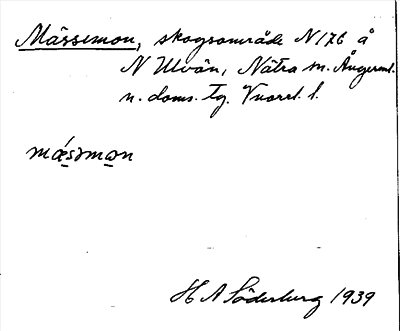 Mässemon, skogsområde N176 å
N Ulvön, Nätra sn. Ångerml.
n. doms. tg. Vnorrl. l.
mæ´səmən
H A Söderburg 1939